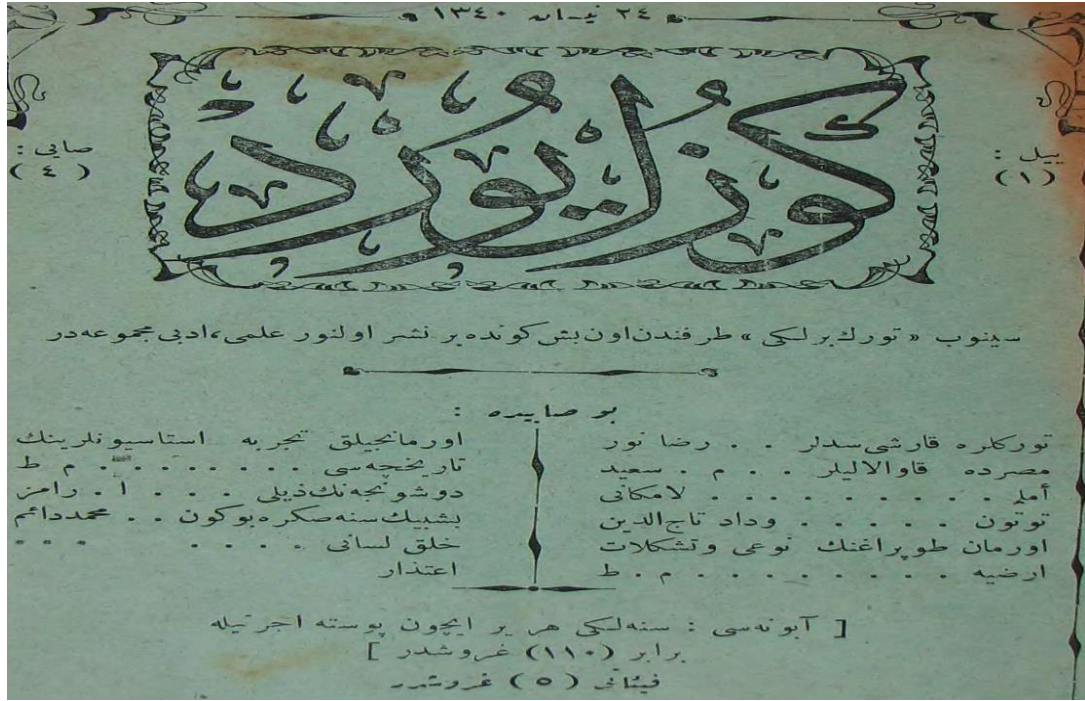 ٢٤ نيسان ١٣٤٠
ييل :
(١)
كوزل يورد
صايى :
(٤)
سينوب «تورك برلكى» طرفندن اون بش كونده بر نشر اولنور علمى، ادبى مجموعه‌در
بو صاييده :
توركلره قارشى سدلر . . رضا نور
مصرده قاوالاليلر . . . م . سعيد
أمل . . . . . . . . . لامكانى
توتون . . . . . وداد تاج الدين
اورمان طوپراغنك نوعى وتشكلات
ارضيه . . . . . . . . . م . ط
اورمانجيلق تجربه استاسيونلرينك
تاريخچه‌سى . . . . . . . . م ط
دوشونجه‌نك ذيلى . . . ا . رامز
بشبيك سنه صكره بوكون . . محمد دائم
خلق لسانى . . . . . . .
اعتذار
[ آبونه‌سى : سنه‌لكى هر ير ايچون پوسته اجرتيله
برابر (١١٠) غروشدر ]
فيئاتى (٥) غروشدر